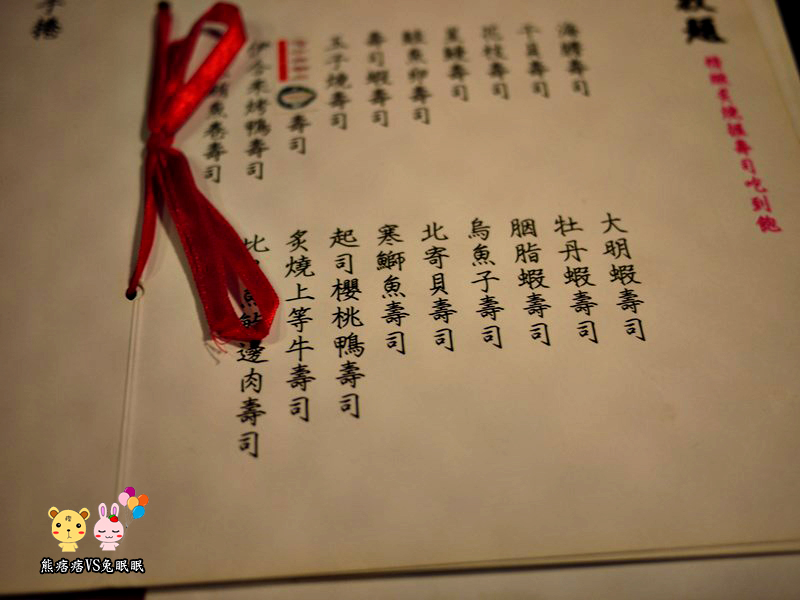 題
精緻炙燒握壽司吃到飽
海壽司
干貝壽司
花枝壽司
星鰻壽司
鮭魚卵壽司
壽司蝦壽司
玉子燒壽司
壽司
烤鴨壽司
魚卷壽司
大明蝦壽司
牡丹蝦壽司
胭脂蝦壽司
烏魚子壽司
北寄貝壽司
寒鰤魚壽司
起司櫻桃鴨壽司
炙燒上等牛壽司
比魚邊肉壽司
子捲
熊痞痞VS兔眠眠